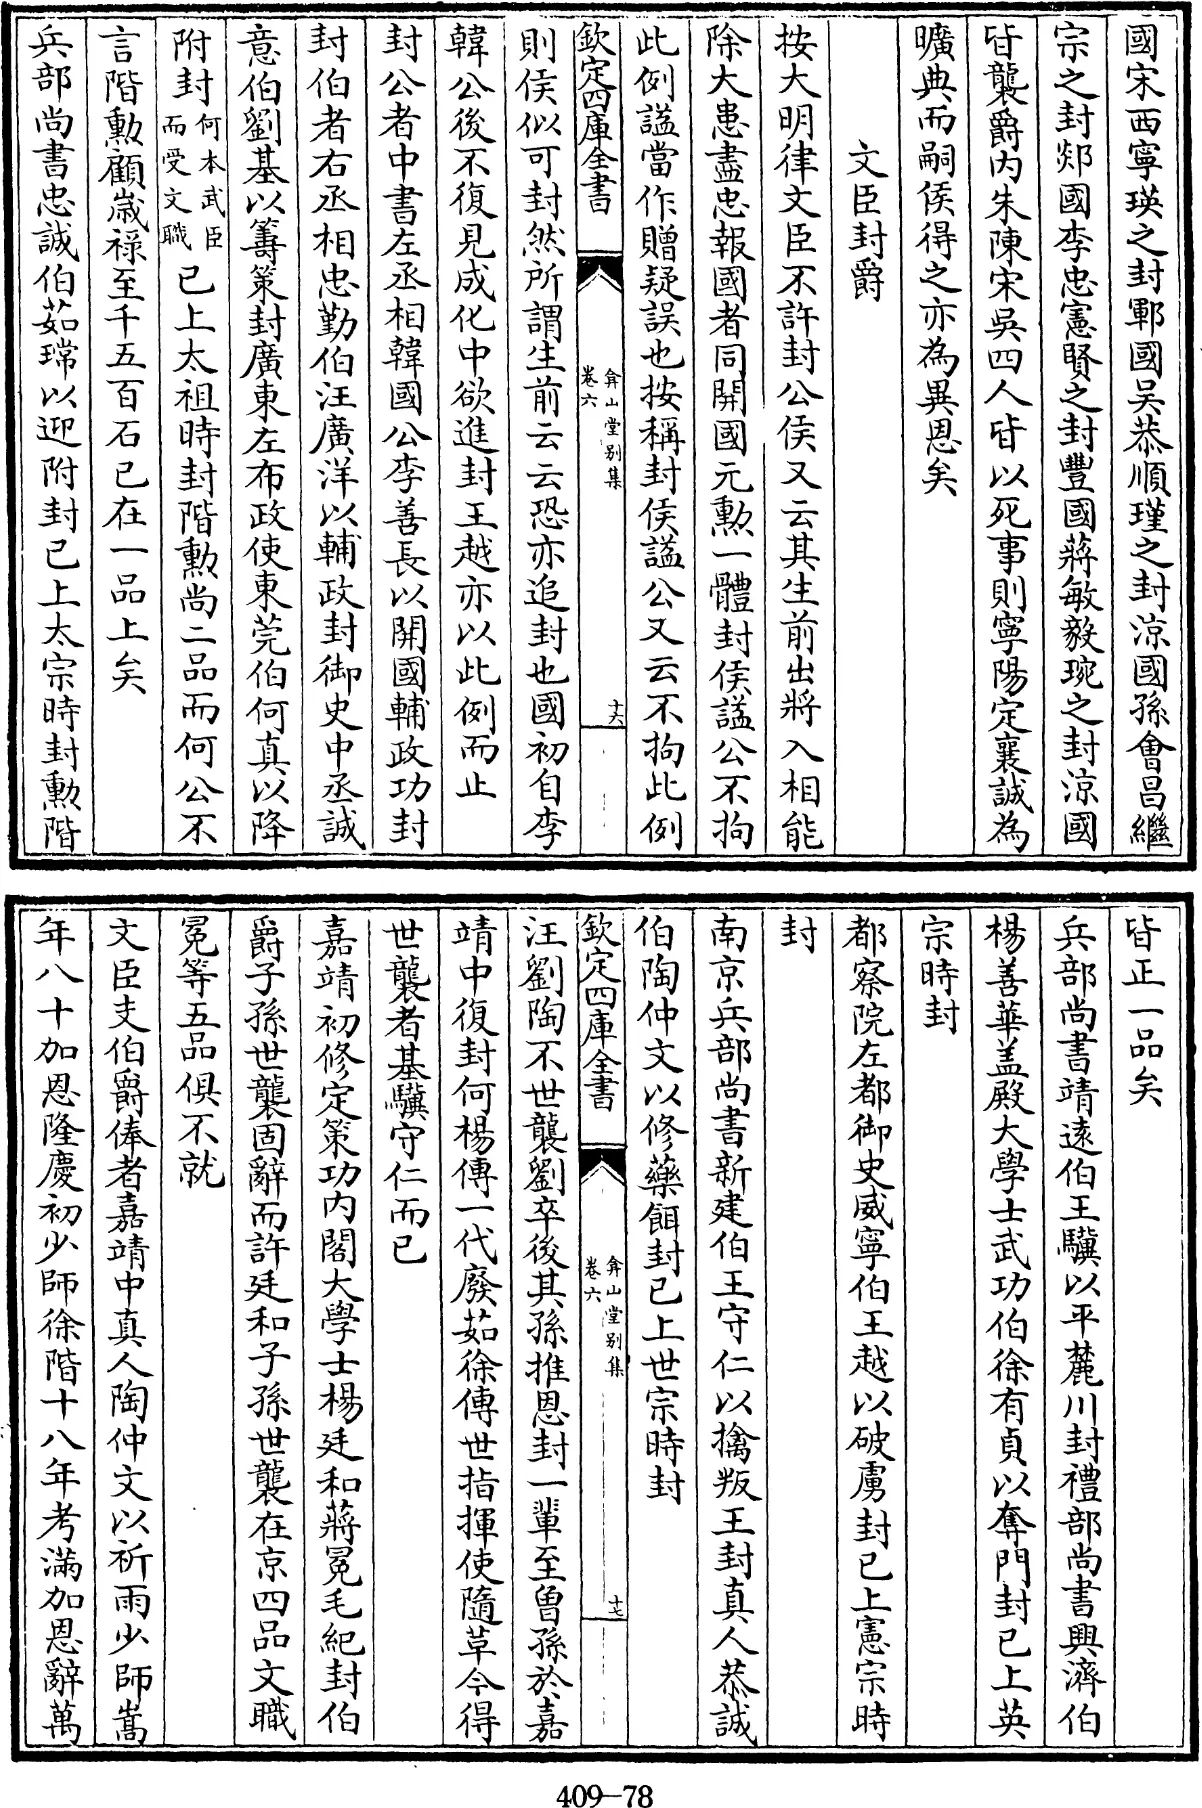 國宋西寧瑛之封鄆國吴恭順瑾之封涼國孫會昌繼
宗之封郯國李忠憲賢之封豐國蔣敏毅琬之封涼國
皆襲爵内朱陳宋吳四人皆以死事則寧陽定襄誠為
曠典而嗣侯得之亦為異恩矣
文臣封爵
按大明律文臣不許封公侯又云其生前出將入相能
除大患盡忠報國者同開國元勲一體封侯諡公不拘
此例諡當作贈疑誤也按稱封侯諡公又云不拘此例
欽定四庫全書
弇山堂别集
卷六
十六
則侯似可封然所謂生前云云恐亦追封也國初自李
韓公後不復見成化中欲進封王越亦以此例而止
封公者中書左丞相韓國公李善長以開國輔政功封
封伯者右丞相忠勤伯汪廣洋以輔政封御史中丞誠
意伯劉基以籌策封廣東左布政使東莞伯何真以降
附封何本武臣而受文職已上太祖時封階勲尚二品而何公不
言階勲顧嵗禄至千五百石已在一品上矣
兵部尚書忠誠伯茹瑺以迎附封已上太宗時封勲階
皆正一品矣
兵部尚書靖逺伯王驥以平麓川封禮部尚書興濟伯
楊善華盖殿大學士武功伯徐有貞以奪門封已上英
宗時封
都察院左都御史威寧伯王越以破虜封已上憲宗時
封
南京兵部尚書新建伯王守仁以擒叛王封真人恭誠
伯陶仲文以修藥餌封已上世宗時封
欽定四庫全書
弇山堂别集
卷六
十七
汪劉陶不世襲劉卒後其孫推恩封一軰至曽孫於嘉
靖中復封何楊傳一代廢茹徐傳世指揮使隨革今得
世襲者基驥守仁而已
嘉靖初修定策功内閣大學士楊廷和蔣冕毛紀封伯
爵子孫世襲固辭而許廷和子孫世襲在京四品文職
冕等五品俱不就
文臣支伯爵俸者嘉靖中真人陶仲文以祈雨少師嵩
年八十加恩隆慶初少師徐階十八年考滿加恩辭萬
409-78